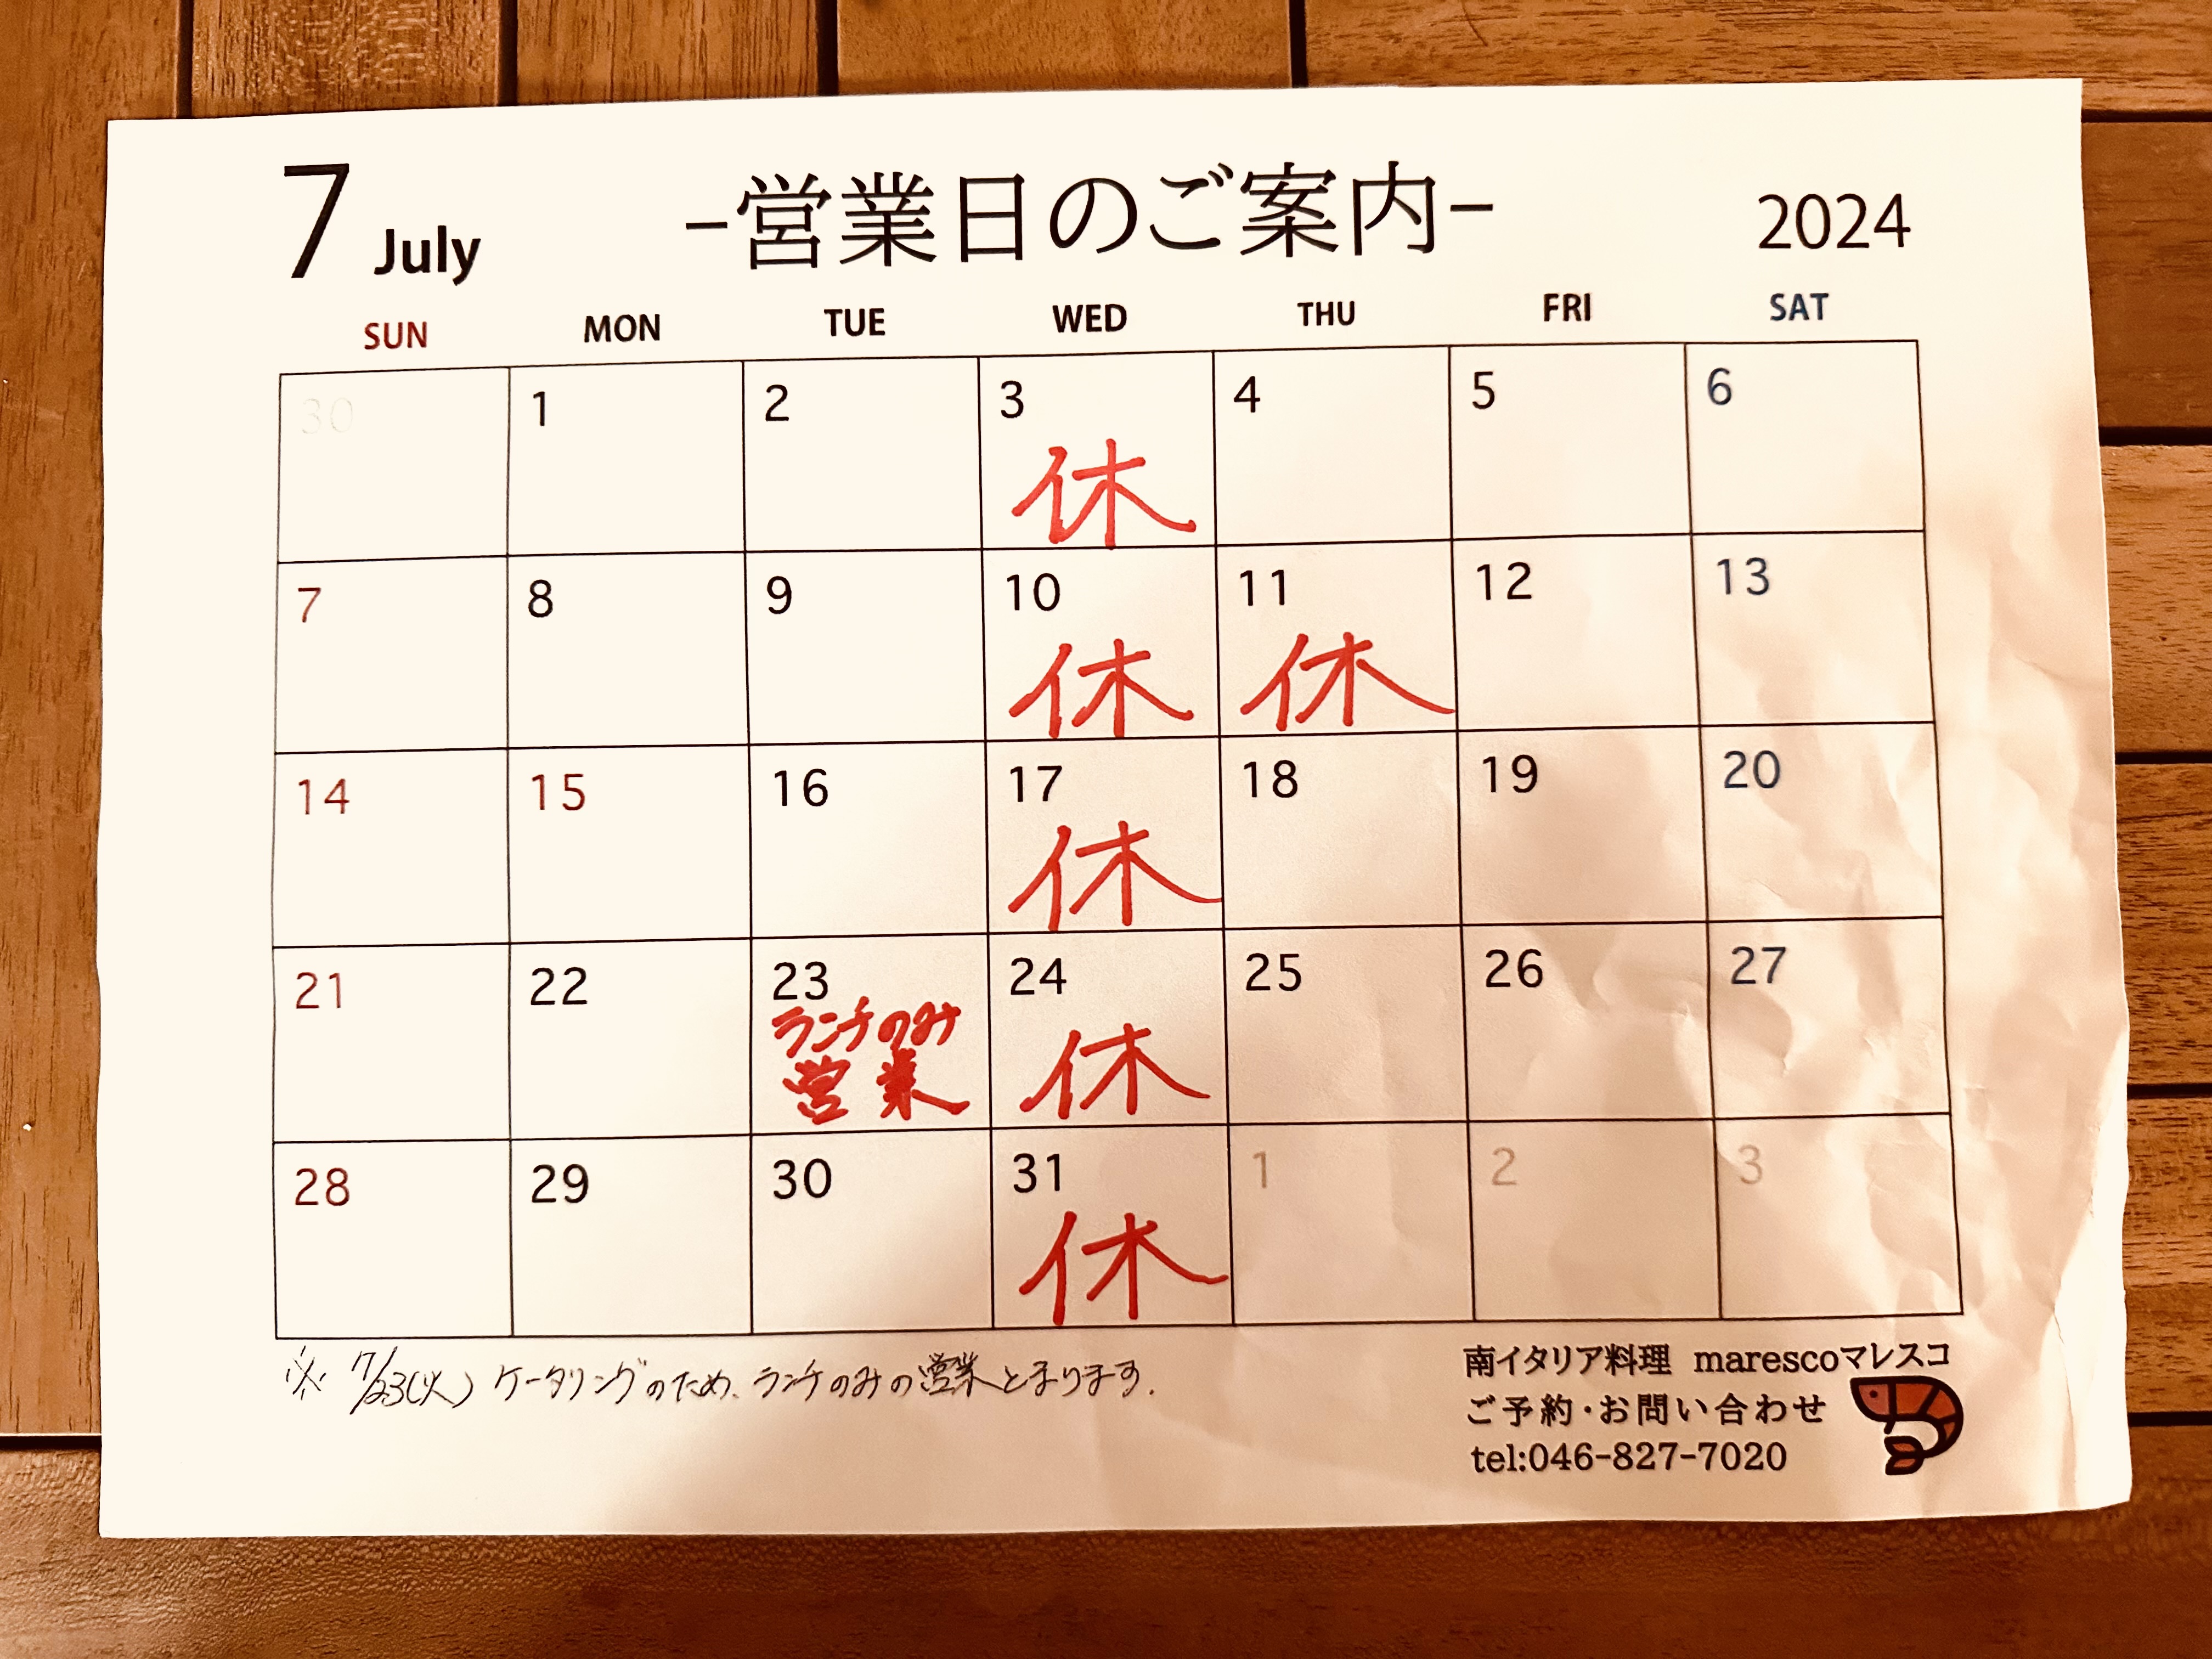 7 July -営業日のご案内- 2024
SUN MON TUE WED THU FRI SAT
30 1 2 3 4 5 6
休
7 8 9 10 11 12 13
休 休
14 15 16 17 18 19 20
休
21 22 23 24 25 26 27
ランチのみ
営業 休
28 29 30 31 1 2 3
休
※ 7/23(火) ケータリングのため、ランチのみの営業となります.
南イタリア料理 marescoマレスコ
ご予約・お問い合わせ
tel:046-827-7020